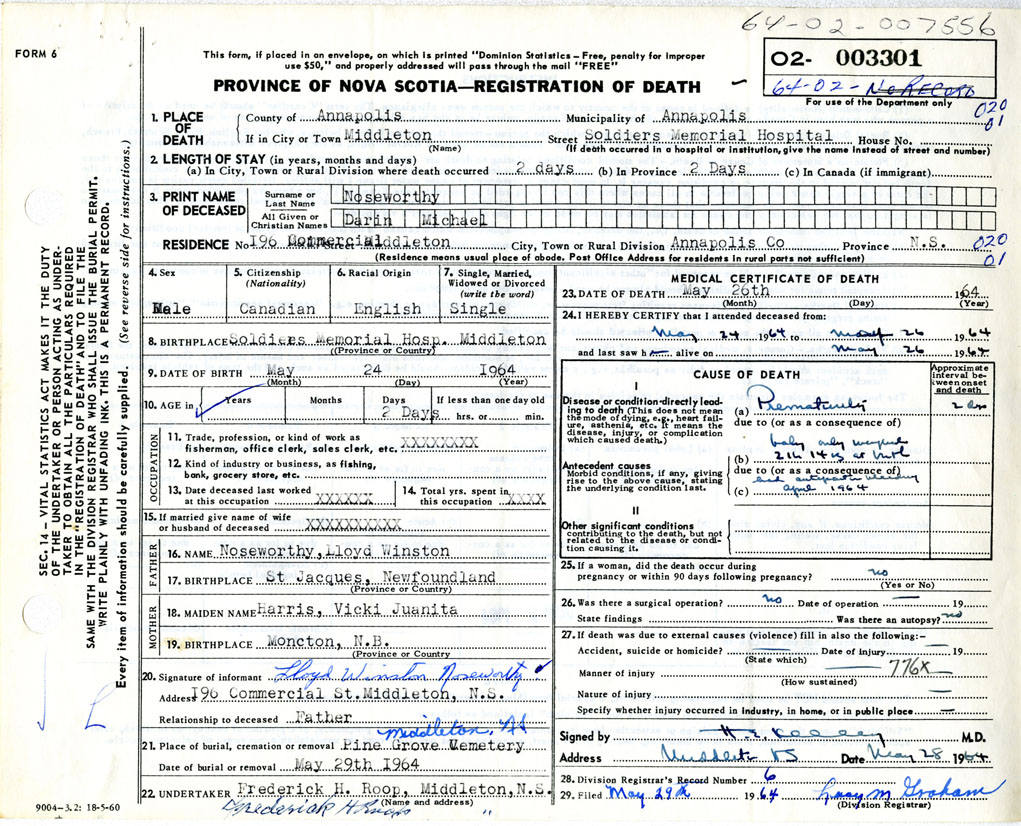 64-02-007556
FORM 6
This form, if placed in an envelope, on which is printed "Dominion Statistics – Free, penalty for improper
use $50," and properly addressed will pass through the mail "FREE"
O2- 003301
64-02- No Record
For use of the Department only
PROVINCE OF NOVA SCOTIA—REGISTRATION OF DEATH
020
01
1. PLACE OF DEATH { County of Annapolis Municipality of Annapolis
If in City or Town Middleton Street Soldiers Memorial Hospital House No.
(Name) (If death occurred in a hospital or institution, give the name instead of street and number)
2. LENGTH OF STAY (in years, months and days)
(a) In City, Town or Rural Division where death occurred 2 days (b) In Province 2 Days (c) In Canada (if immigrant)
3. PRINT NAME OF DECEASED Surname or Last Name Noseworthy
All Given or Christian Names Darin Michael
RESIDENCE No I96 Commercial Street Middleton City, Town or Rural Division Annapolis Co Province N.S. 020
01
(Residence means usual place of abode. Post Office Address for residents in rural parts not sufficient)
SEC. 14 – VITAL STATISTICS ACT MAKES IT THE DUTY
OF THE UNDERTAKER OR PERSON ACTING AS UNDER-
TAKER TO OBTAIN ALL THE PARTICULARS REQUIRED
IN THE "REGISTRATION OF DEATH" AND TO FILE THE
SAME WITH THE DIVISION REGISTRAR WHO SHALL ISSUE THE BURIAL PERMIT.
WRITE PLAINLY WITH UNFADING INK. THIS IS A PERMANENT RECORD.
Every item of information should be carefully supplied. (See reverse side for instructions.)
4. Sex
Male
5. Citizenship
(Nationality)
Canadian
6. Racial Origin
English
7. Single, Married,
Widowed or Divorced
(write the word)
Single
8. BIRTHPLACE Soldiers Memorial Hosp. Middleton
(Province or Country)
9. DATE OF BIRTH May 24 I964
(Month) (Day) (Year)
10. AGE in Years Months Days If less than one day old
2 Days hrs. or min.
OCCUPATION
11. Trade, profession, or kind of work as
fisherman, office clerk, sales clerk, etc. XXXXXXXX
12. Kind of industry or business, as fishing,
bank, grocery store, etc.
13. Date deceased last worked
at this occupation XXXXXX
14. Total yrs. spent in
this occupation XXXX
15. If married give name of wife
or husband of deceased XXXXXXXXXX
FATHER
16. NAME Noseworthy, Lloyd Winston
17. BIRTHPLACE St Jacques, Newfoundland
(Province or Country)
MOTHER
18. MAIDEN NAME Harris, Vicki Juanita
19. BIRTHPLACE Moncton, N.B.
(Province or Country)
20. Signature of informant Lloyd Winston Noseworthy
Address I96 Commercial St. Middleton, N.S.
Relationship to deceased Father
Middleton, NS
21. Place of burial, cremation or removal Pine Grove Cemetery
Date of burial or removal May 29th I964
22. UNDERTAKER Frederick H. Roop, Middleton, N.S.
(Name and address)
Frederick H Roop "
9004–3.2: 18-5-60
MEDICAL CERTIFICATE OF DEATH
23. DATE OF DEATH May 26th 1964
(Month) (Day) (Year)
24. I HEREBY CERTIFY that I attended deceased from:
May 24 1964 to May 26 1964
and last saw h alive on May 26 1964
CAUSE OF DEATH
Approximate
interval be-
tween onset
and death
I
Disease or condition directly lead-
ing to death (This does not mean
the mode of dying, e.g., heart fail-
ure, asthenia, etc. It means the
disease, injury, or complication
which caused death.)
(a) Prematurity
due to (or as a consequence of)
baby only weighed
(b) 2 lb 14 oz at birth
Antecedent causes
Morbid conditions, if any, giving
rise to the above cause, stating
the underlying condition last.
due to (or as a consequence of)
had antepartum bleeding
(c) april 1964
II
Other significant conditions
contributing to the death, but not
related to the disease or condi-
tion causing it.
25. If a woman, did the death occur during
pregnancy or within 90 days following pregnancy? no
(Yes or No)
26. Was there a surgical operation? no Date of operation — 19
State findings Was there an autopsy? no
27. If death was due to external causes (violence) fill in also the following:–
Accident, suicide or homicide? — Date of injury — 19
(State which)
Manner of injury — 776X
(How sustained)
Nature of injury —
Specify whether injury occurred in industry, in home, or in public place —
Signed by M.D.
Address Middleton NS Date May 28 1964
28. Division Registrar's Record Number 6
29. Filed May 29th 1964 M Graham
(Division Registrar)